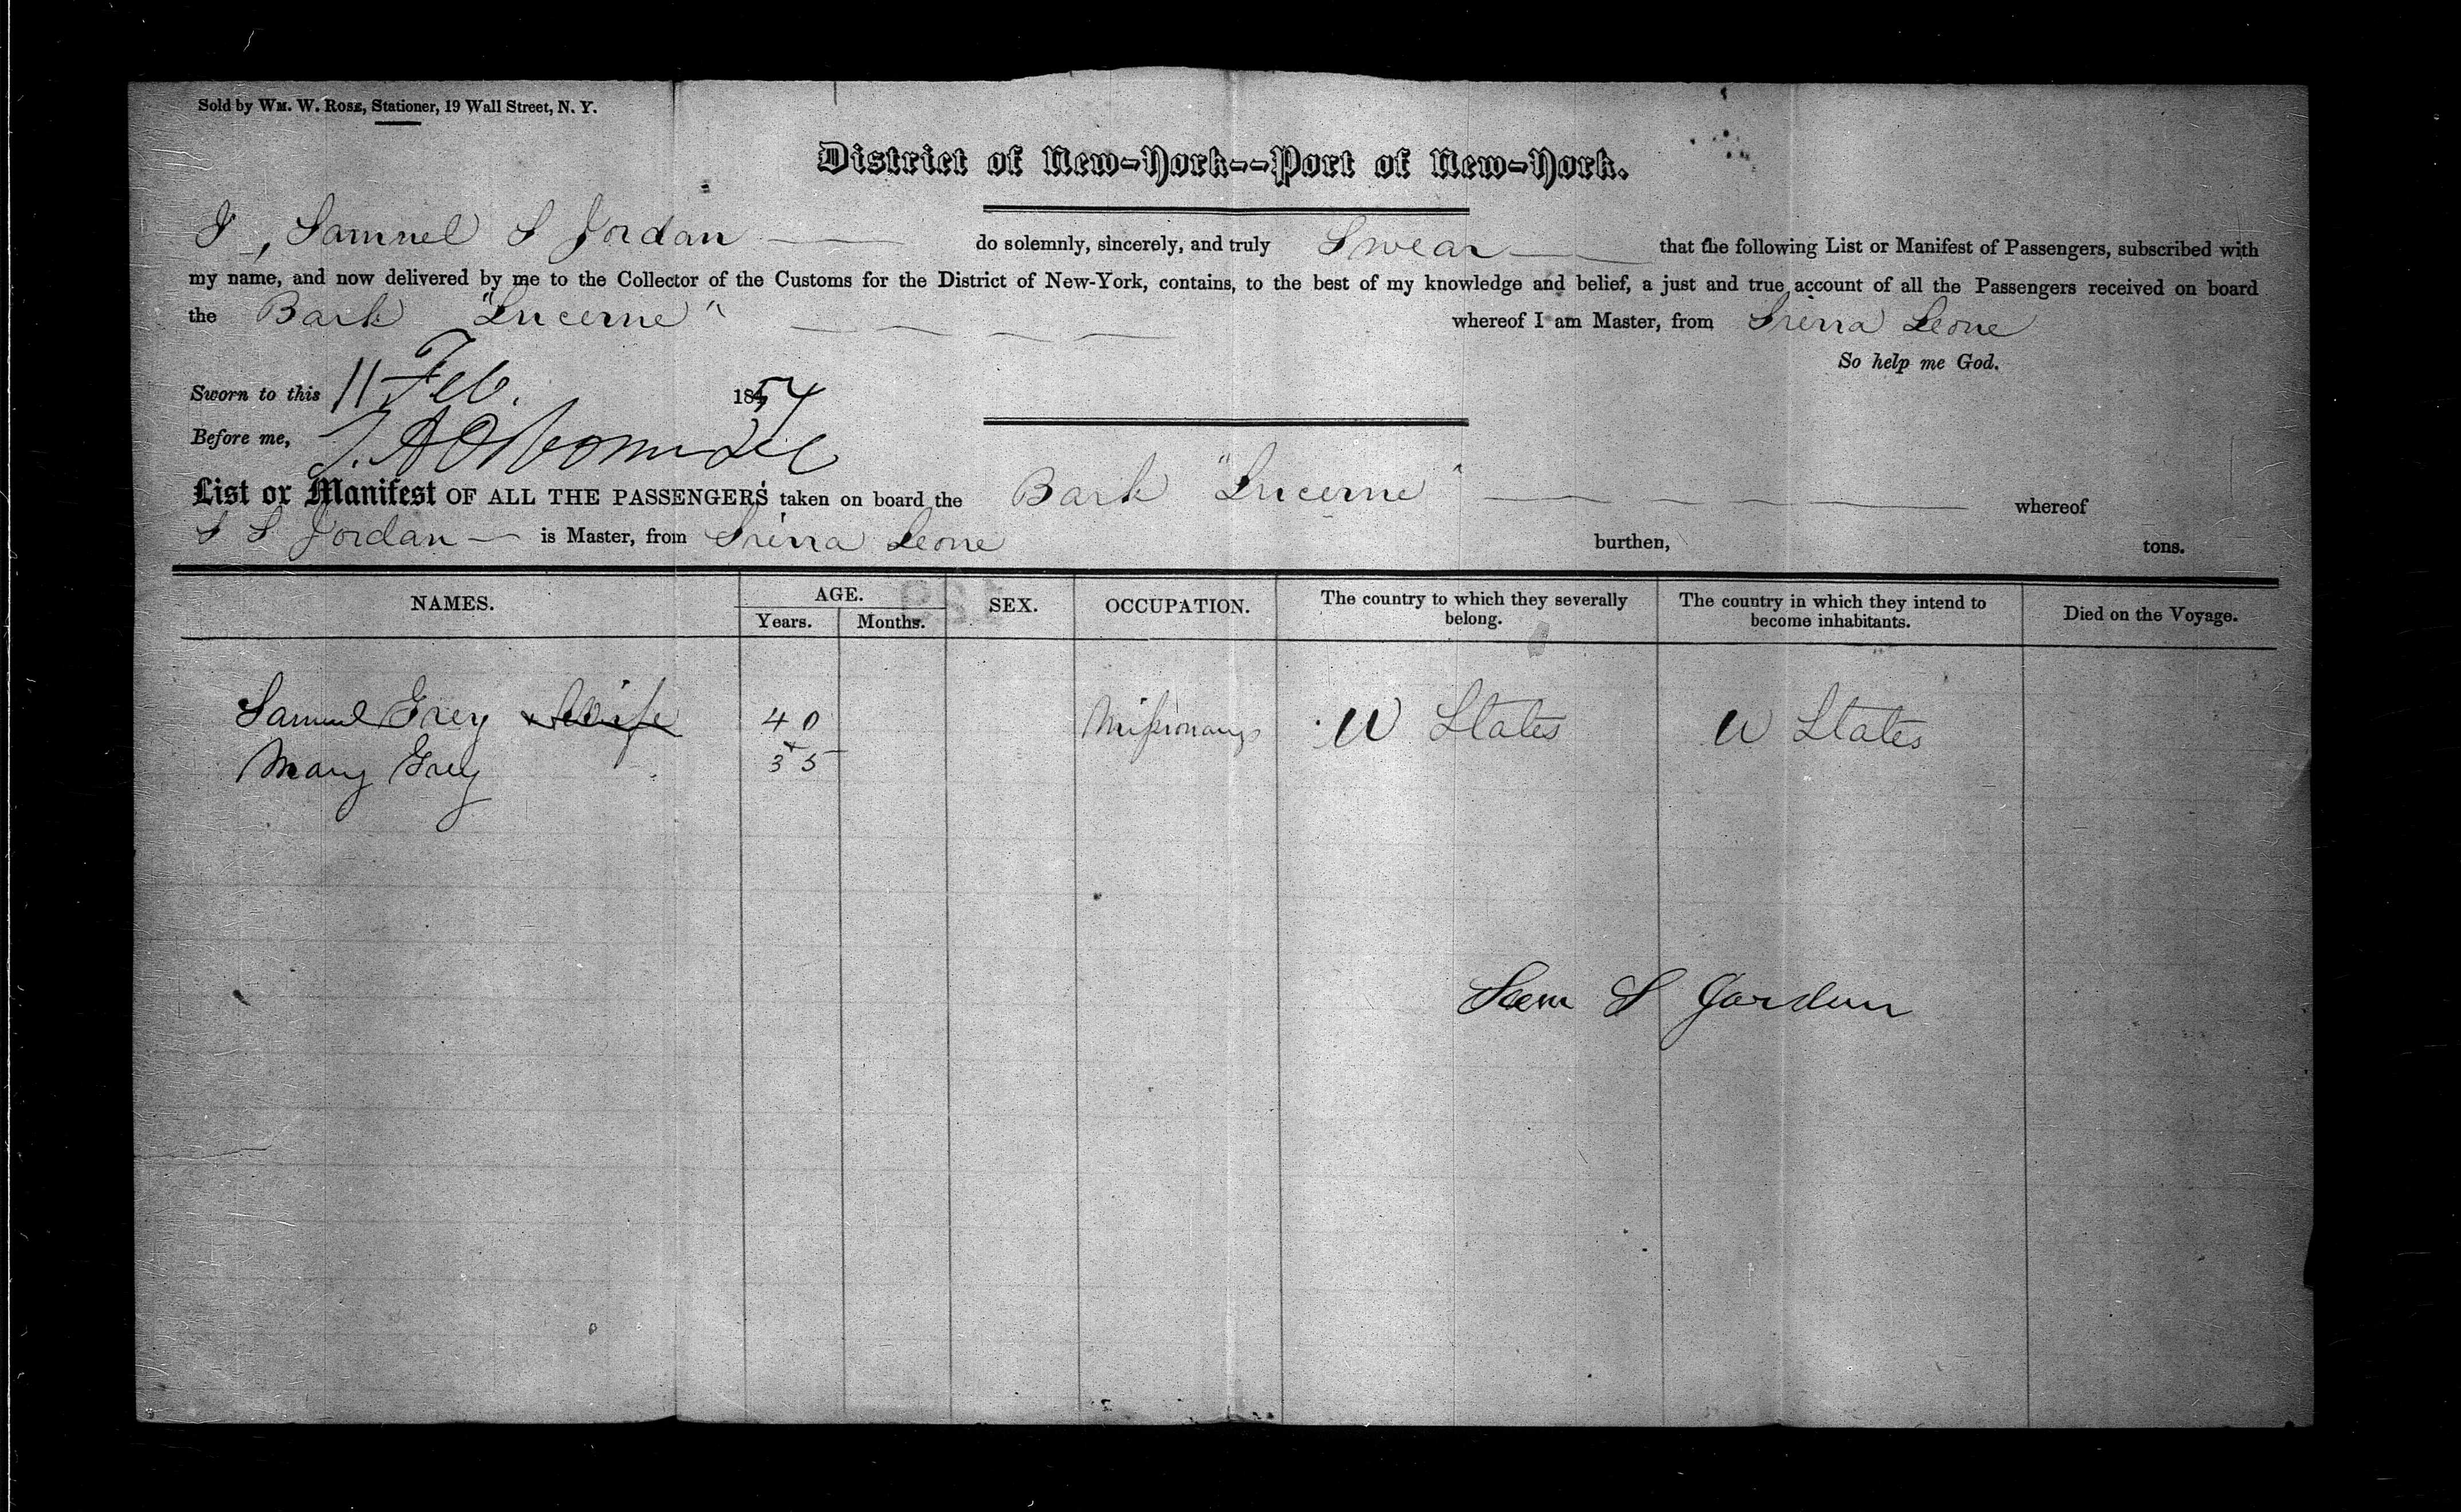 Sold by WM. W. ROSE, Stationer, 19 Wall Street, N. Y.
District of New-York--Port of New-York.
I, Samuel S Jordan do solemnly, sincerely, and truly Swear that the following List or Manifest of Passengers, subscribed with
my name, and now delivered by me to the Collector of the Customs for the District of New-York, contains, to the best of my knowledge and belief, a just and true account of all the Passengers received on board
the Bark "Lucerne" whereof I am Master, from Sierra Leone
So help me God.
Sworn to this 11 Feb. 1854
Before me,
List or Manifest OF ALL THE PASSENGERS taken on board the Bark "Lucerne" whereof
S S Jordan is Master, from Sierra Leone burthen, tons.
NAMES. AGE. SEX. OCCUPATION. The country to which they severally belong. The country in which they intend to become inhabitants. Died on the Voyage.
Years. Months.
Samuel Grey & Wife 40 Missionary U States U States
Mary Grey 35
Sam S Jordan